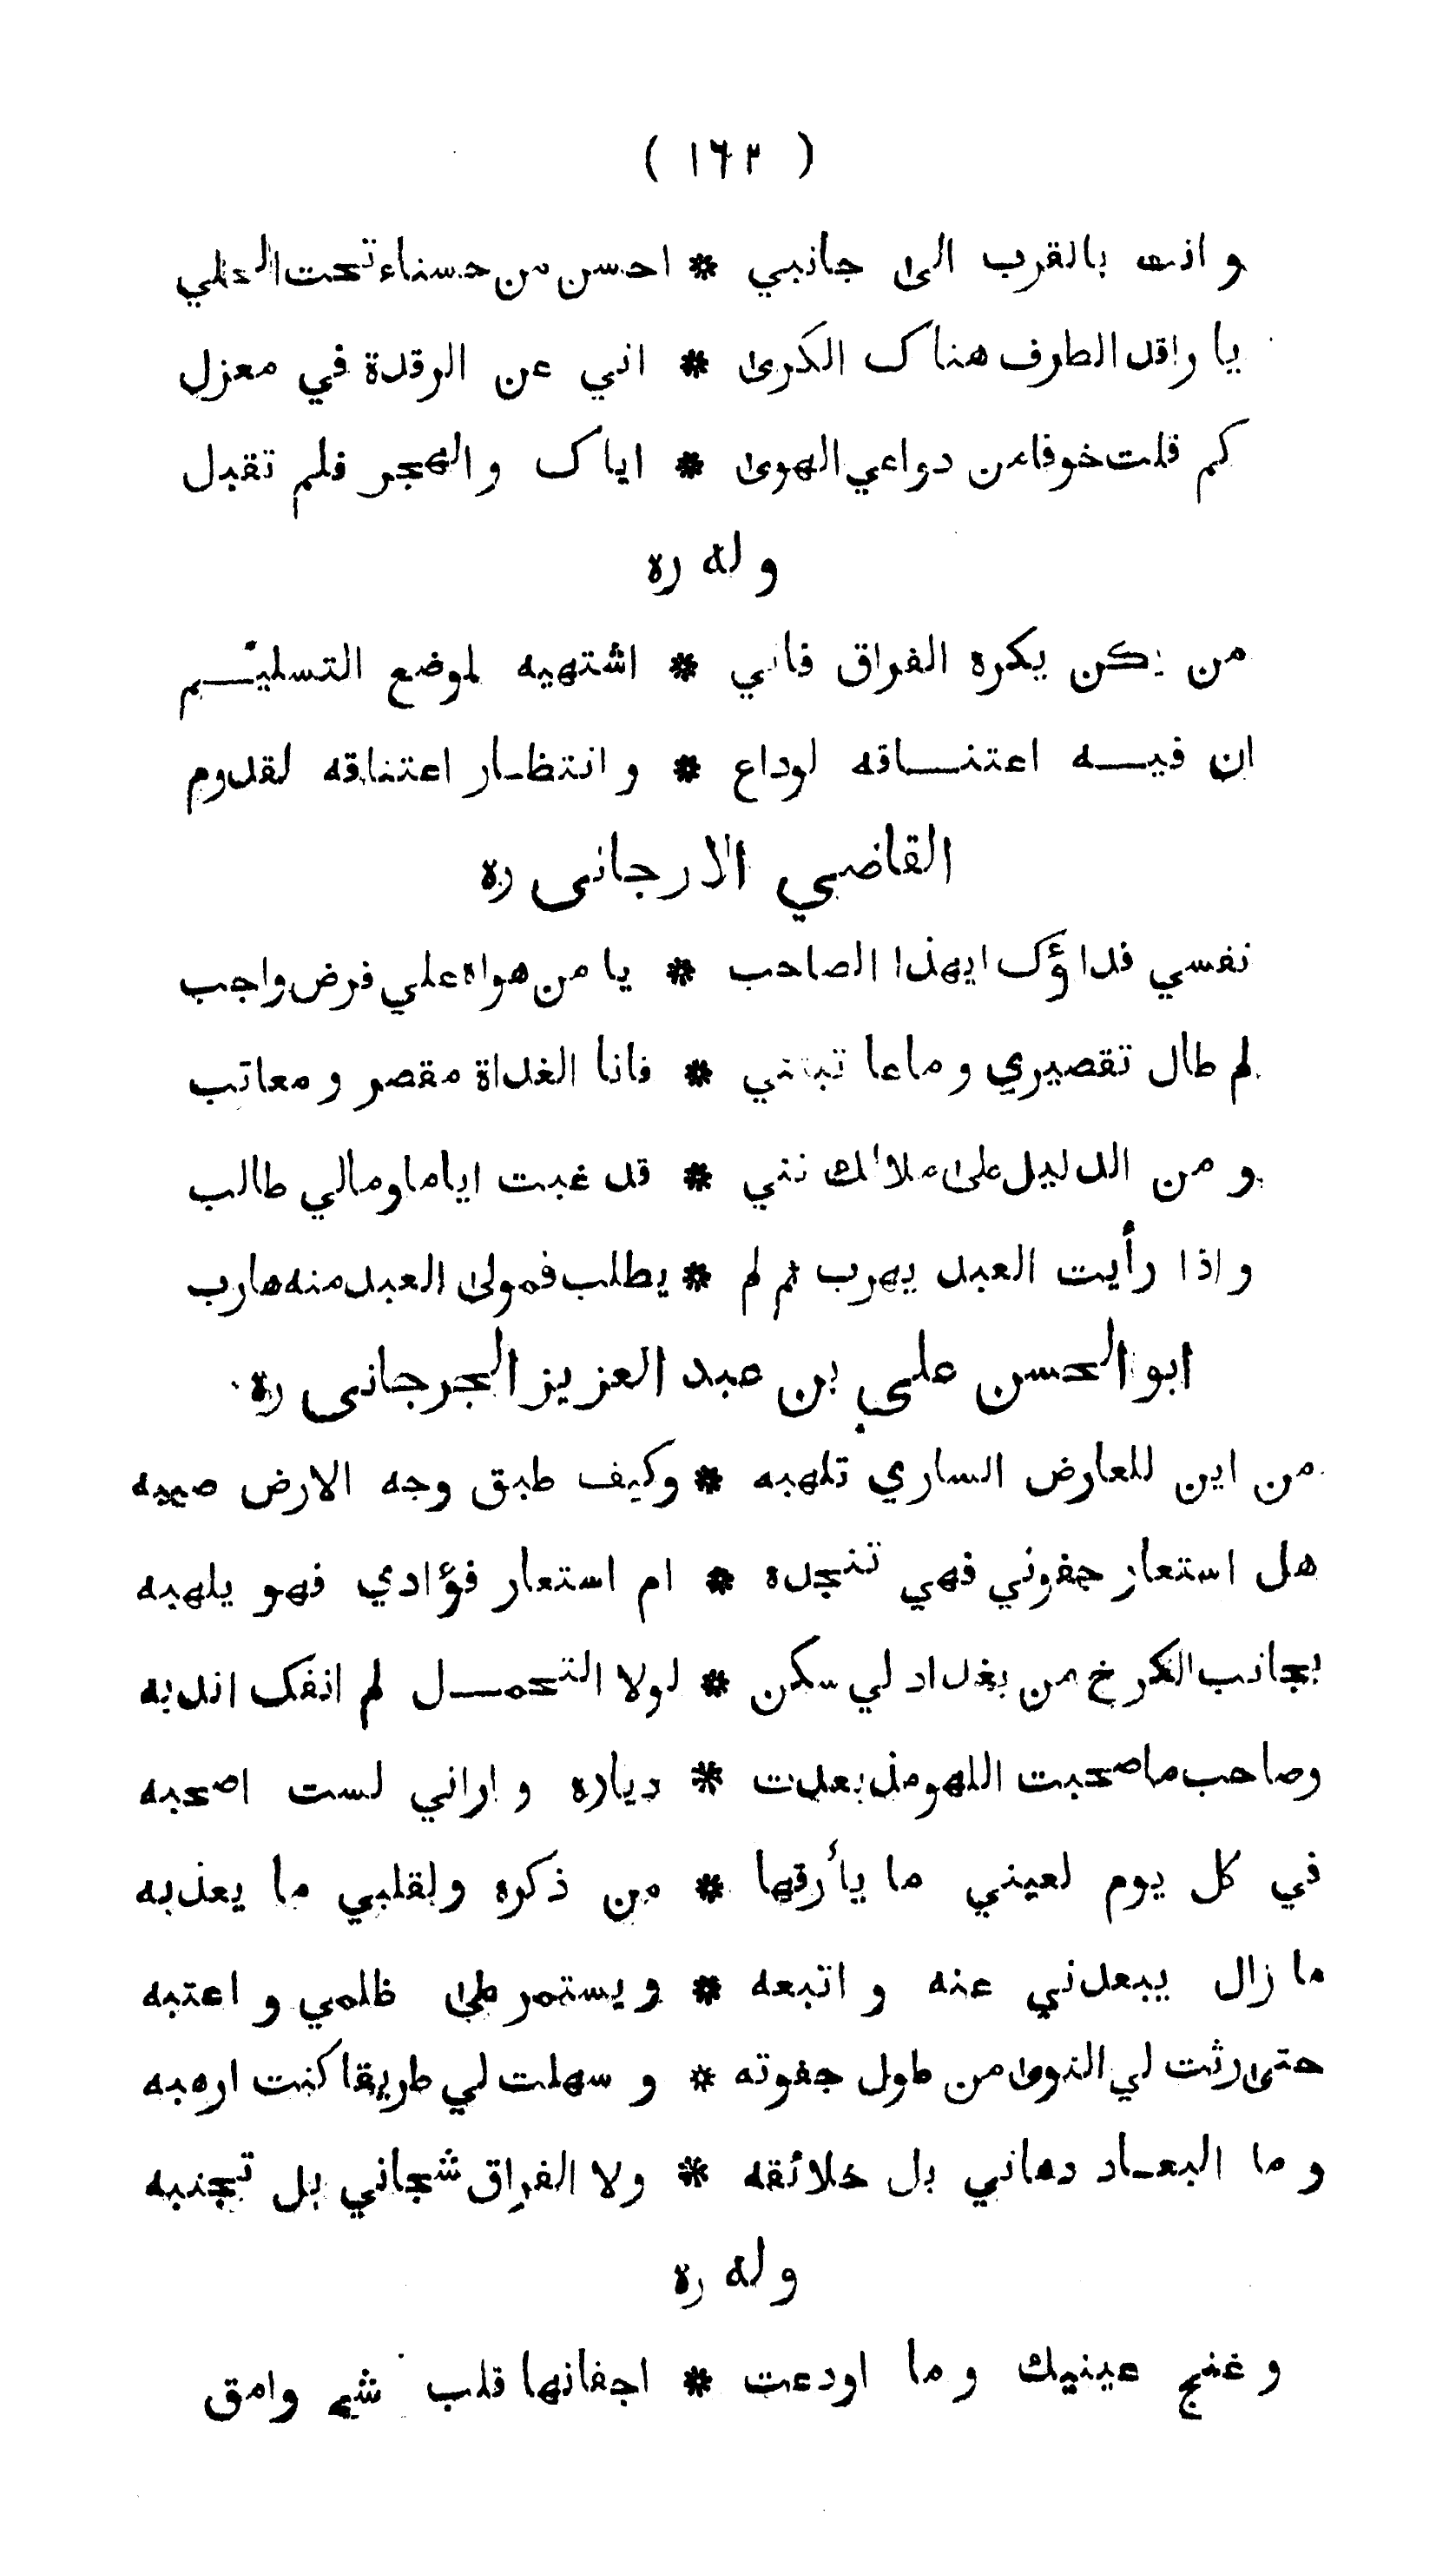 ( ١٦٢ )
و انت بالقرب الى جانبي * احسن من حسناء تحت الحلي
يا راقد الطرف هناك الكرى * اني عن الرقدة في معزل
كم قلت خوفا من دواعي الهوى * اياك والهجر فلم تقبل
و له ره
من يكن يكره الفراق فاني * اشتهيه لموضع التسليم
ان فيه اعتناقه لوداع * و انتظار اعتناقه لقدوم
القاضي الارجاني ره
نفسي فداؤك ايهذا الصاحب * يا من هواه علي فرض واجب
لم طال تقصيري و ما عا تبتني * فانا الغداة مقصر و معاتب
و من الدليل على ملالك نني * قد غبت اياما و مالي طالب
و اذا رأيت العبد يهرب ثم لم * يطلب فمولى العبد منه هارب
ابو الحسن علي بن عبد العزيز الجرجاني ره
من اين للعارض الساري تلهبه * وكيف طبق وجه الارض صيبه
هل استعار جفوني فهي تنجده * ام استعار فؤادي فهو يلهبه
بجانب الكرخ من بغداد لي سكن * لولا التحمل لم انفك اندبه
وصاحب ما صحبت اللهو مذ بعدت * دياره و اراني لست اصحبه
في كل يوم لعيني ما يأرقها * من ذكره ولقلبي ما يعذبه
ما زال يبعدني عنه و اتبعه * و يستمر على ظلمي و اعتبه
حتى رثت لي النوى من طول جفوته * و سهلت لي طريقا كنت ارهبه
و ما البعاد دهاني بل خلائقه * ولا الفراق شجاني بل تجنبه
و له ره
و غنج عينيك و ما اودعت * اجفانها قلب شج وامق